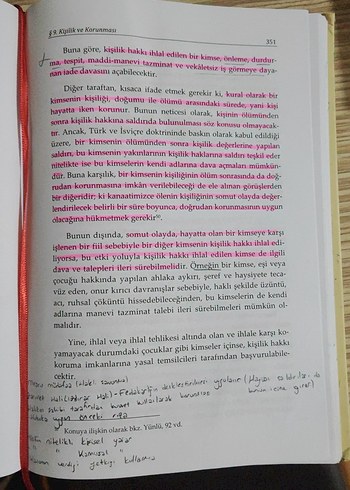 § 9. Kişilik ve Korunması
351
Buna göre, kişilik hakkı ihlal edilen bir kimse, önleme, durdur-
ma, tespit, maddi-manevi tazminat ve vekâletsiz iş görmeye daya-
nan iade davasını açabilecektir.
Diğer taraftan, kısaca ifade etmek gerekir ki, kural olarak bir
kimsenin kişiliği, doğumu ile ölümü arasındaki sürede, yani kişi
hayatta iken korunur. Bunun neticesi olarak, kişinin ölümünden
sonra kişilik hakkına saldırıda bulunulması söz konusu olmayacak-
tır. Ancak, Türk ve İsviçre doktrininde baskın olarak kabul edildiği
üzere, bir kimsenin ölümünden sonra kişilik değerlerine yapılan
saldırı, bu kimsenin yakınlarının kişilik haklarına saldırı teşkil eder
nitelikte ise bu kimselerin kendi adlarına dava açmaları mümkün-
dür. Buna karşılık, bir kimsenin kişiliğinin ölüm sonrasında da doğ-
rudan korunmasına imkân verilebileceği de ele alınan görüşlerden
bir diğeridir; ki kanaatimizce ölenin kişiliğinin somut olayda değer-
lendirilecek belirli bir süre boyunca, doğrudan korunmasının uygun
olacağına hükmetmek gerekir
Bunun dışında, somut olayda, hayatta olan bir kimseye karşı
işlenen bir fiil sebebiyle bir diğer kimsenin kişilik hakkı ihlal edi-
liyorsa, bu etki yoluyla kişilik hakkı ihlal edilen kimse de ilgili
dava ve talepleri ileri sürebilmelidir. Örneğin bir kimse, eşi veya
çocuğu hakkında yapılan ahlaka aykırı, şeref ve haysiyete teca-
vüz eden, onur kırıcı davranışlar sebebiyle, haklı şekilde üzüntü,
acı, ruhsal çöküntü hissedebileceğinden, bu kimselerin de kendi
adlarına manevi tazminat talebi ileri sürebilmeleri mümkün ol-
malıdır.
Yine, ihlal veya ihlal tehlikesi altında olan ve ihlale karşı ko-
yamayacak durumdaki çocuklar gibi kimseler içinse, kişilik hakkı
koruma imkânlarına yasal temsilcileri tarafından başvurulabile-
cektir.
Konuya ilişkin olarak bkz. Yünlü, 92 vd.